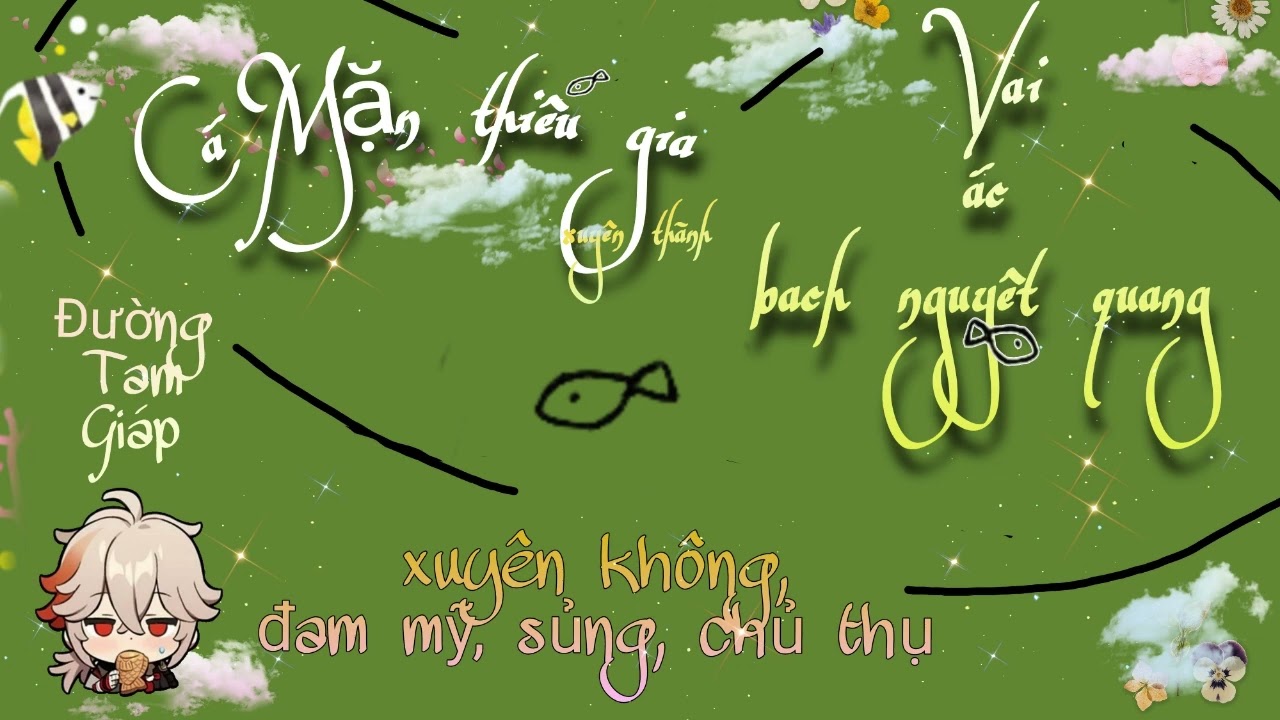 Cá Mặn thiếu gia
xuyên thành
Vai
ác
bạch nguyệt quang
Đường
Tam
Giáp
xuyên không,
đam mỹ, sủng, chủ thụ